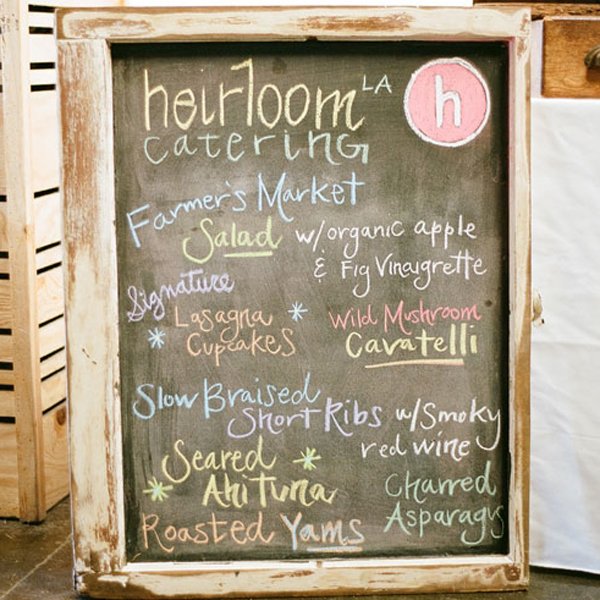 heirloom LA
h
catering
Farmer's Market
Salad w/organic apple
& Fig Vinaigrette
Signature
Lasagna
Cupcakes
Wild Mushroom
Cavatelli
Slow Braised
Short Ribs w/Smoky
red wine
Seared
Ahi Tuna
Charred
Asparagus
Roasted Yams